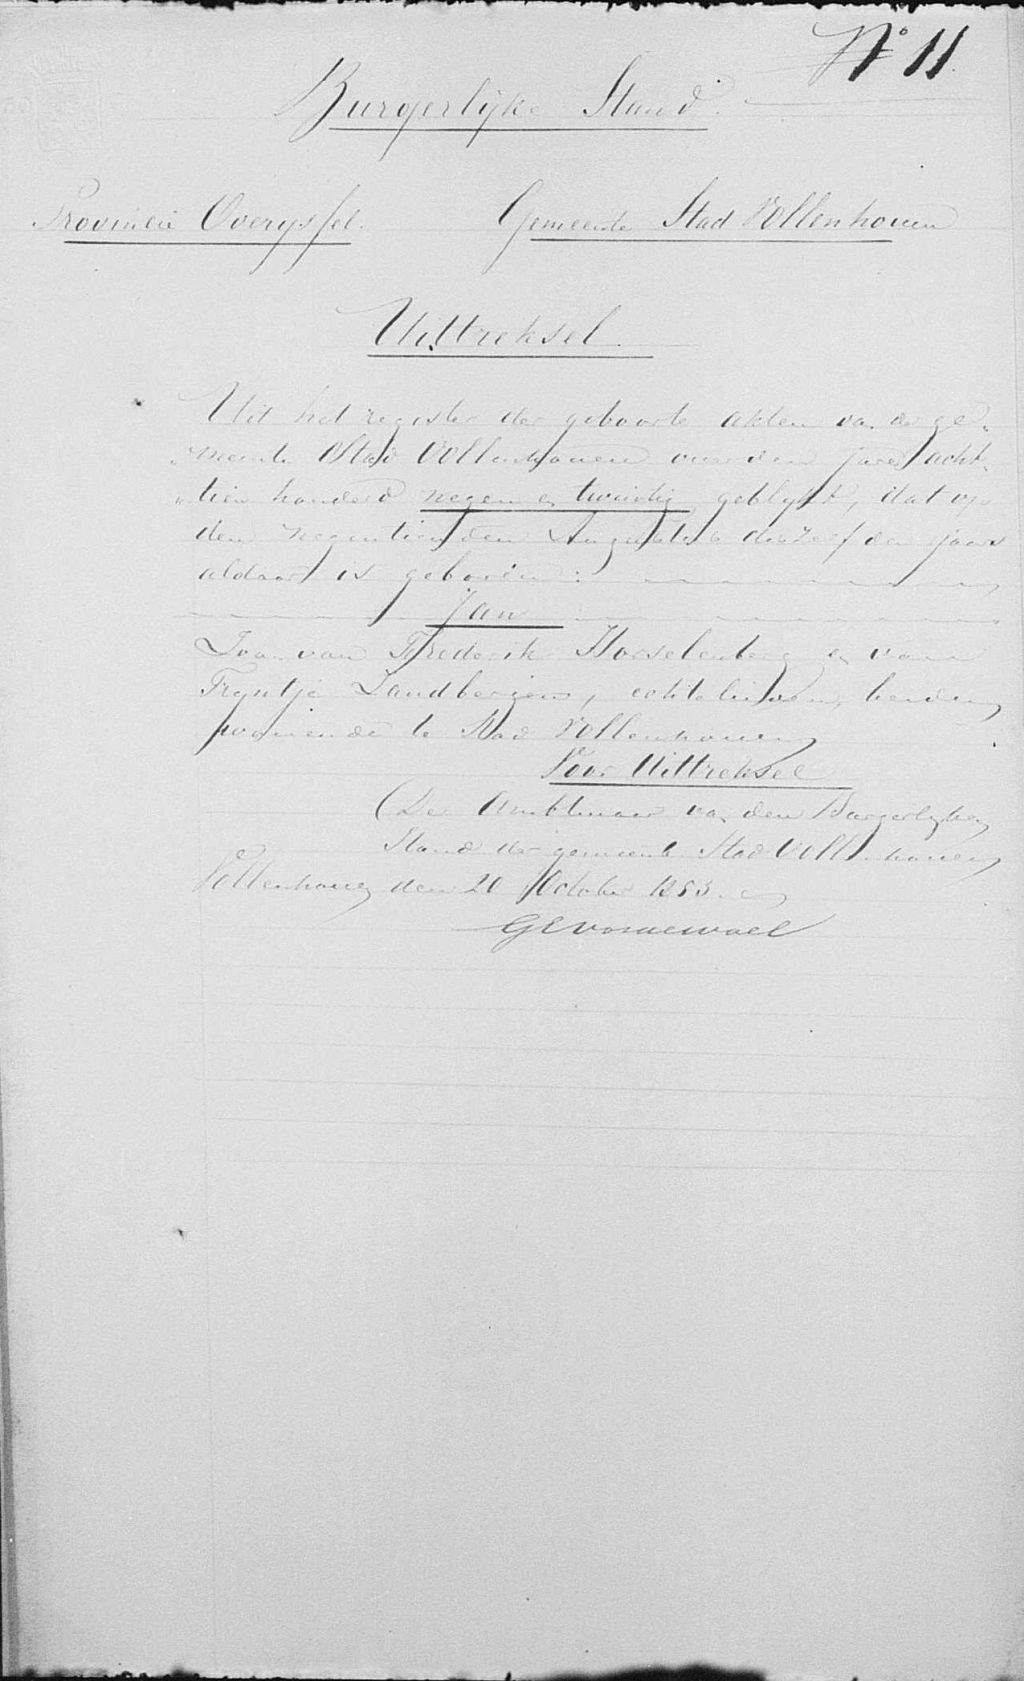 No 11.
Burgerlijke Stand.
Provincie Overyssel. Gemeente Stad Vollenhoven
Uittreksel.
Uit het register der geboorte akten van de ge„
„meente Stad Vollenhoven voor den jare acht„
„tien honderd negen en twintig, geblykt, dat op
den negentienden Augustus deszelfden jaars
aldaar is geboren:
Jan
Zoon van Frederik Horselenberg en van
Tryntje Zandbergen, echtelieden, beiden
wonende te Stad Vollenhoven
Voor Uittreksel
De Ambtenaar van den Burgerlyken
Stand der gemeente Stad Vollenhoven
Vollenhoven den 20 October 1853.